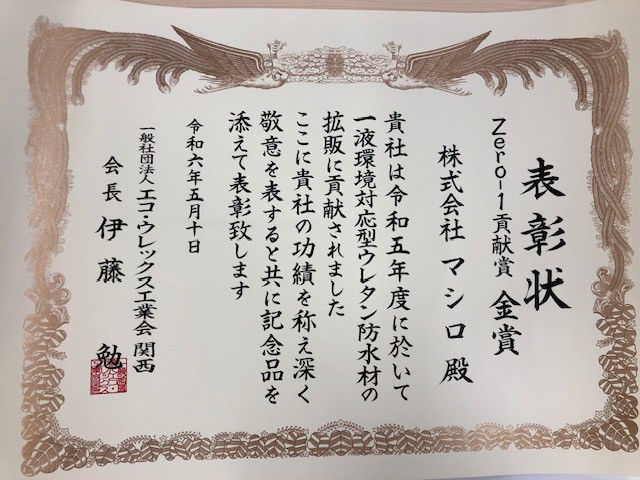 表彰状
Zero-1貢献賞 金賞
株式会社 マシロ 殿
貴社は令和五年度に於いて
一液環境対応型ウレタン防水材の
拡販に貢献されました
ここに貴社の功績を称え深く
敬意を表すると共に記念品を
添えて表彰致します
令和六年五月十日
一般社団法人 エコ・ウレックス工業会 関西
会長 伊藤 勉